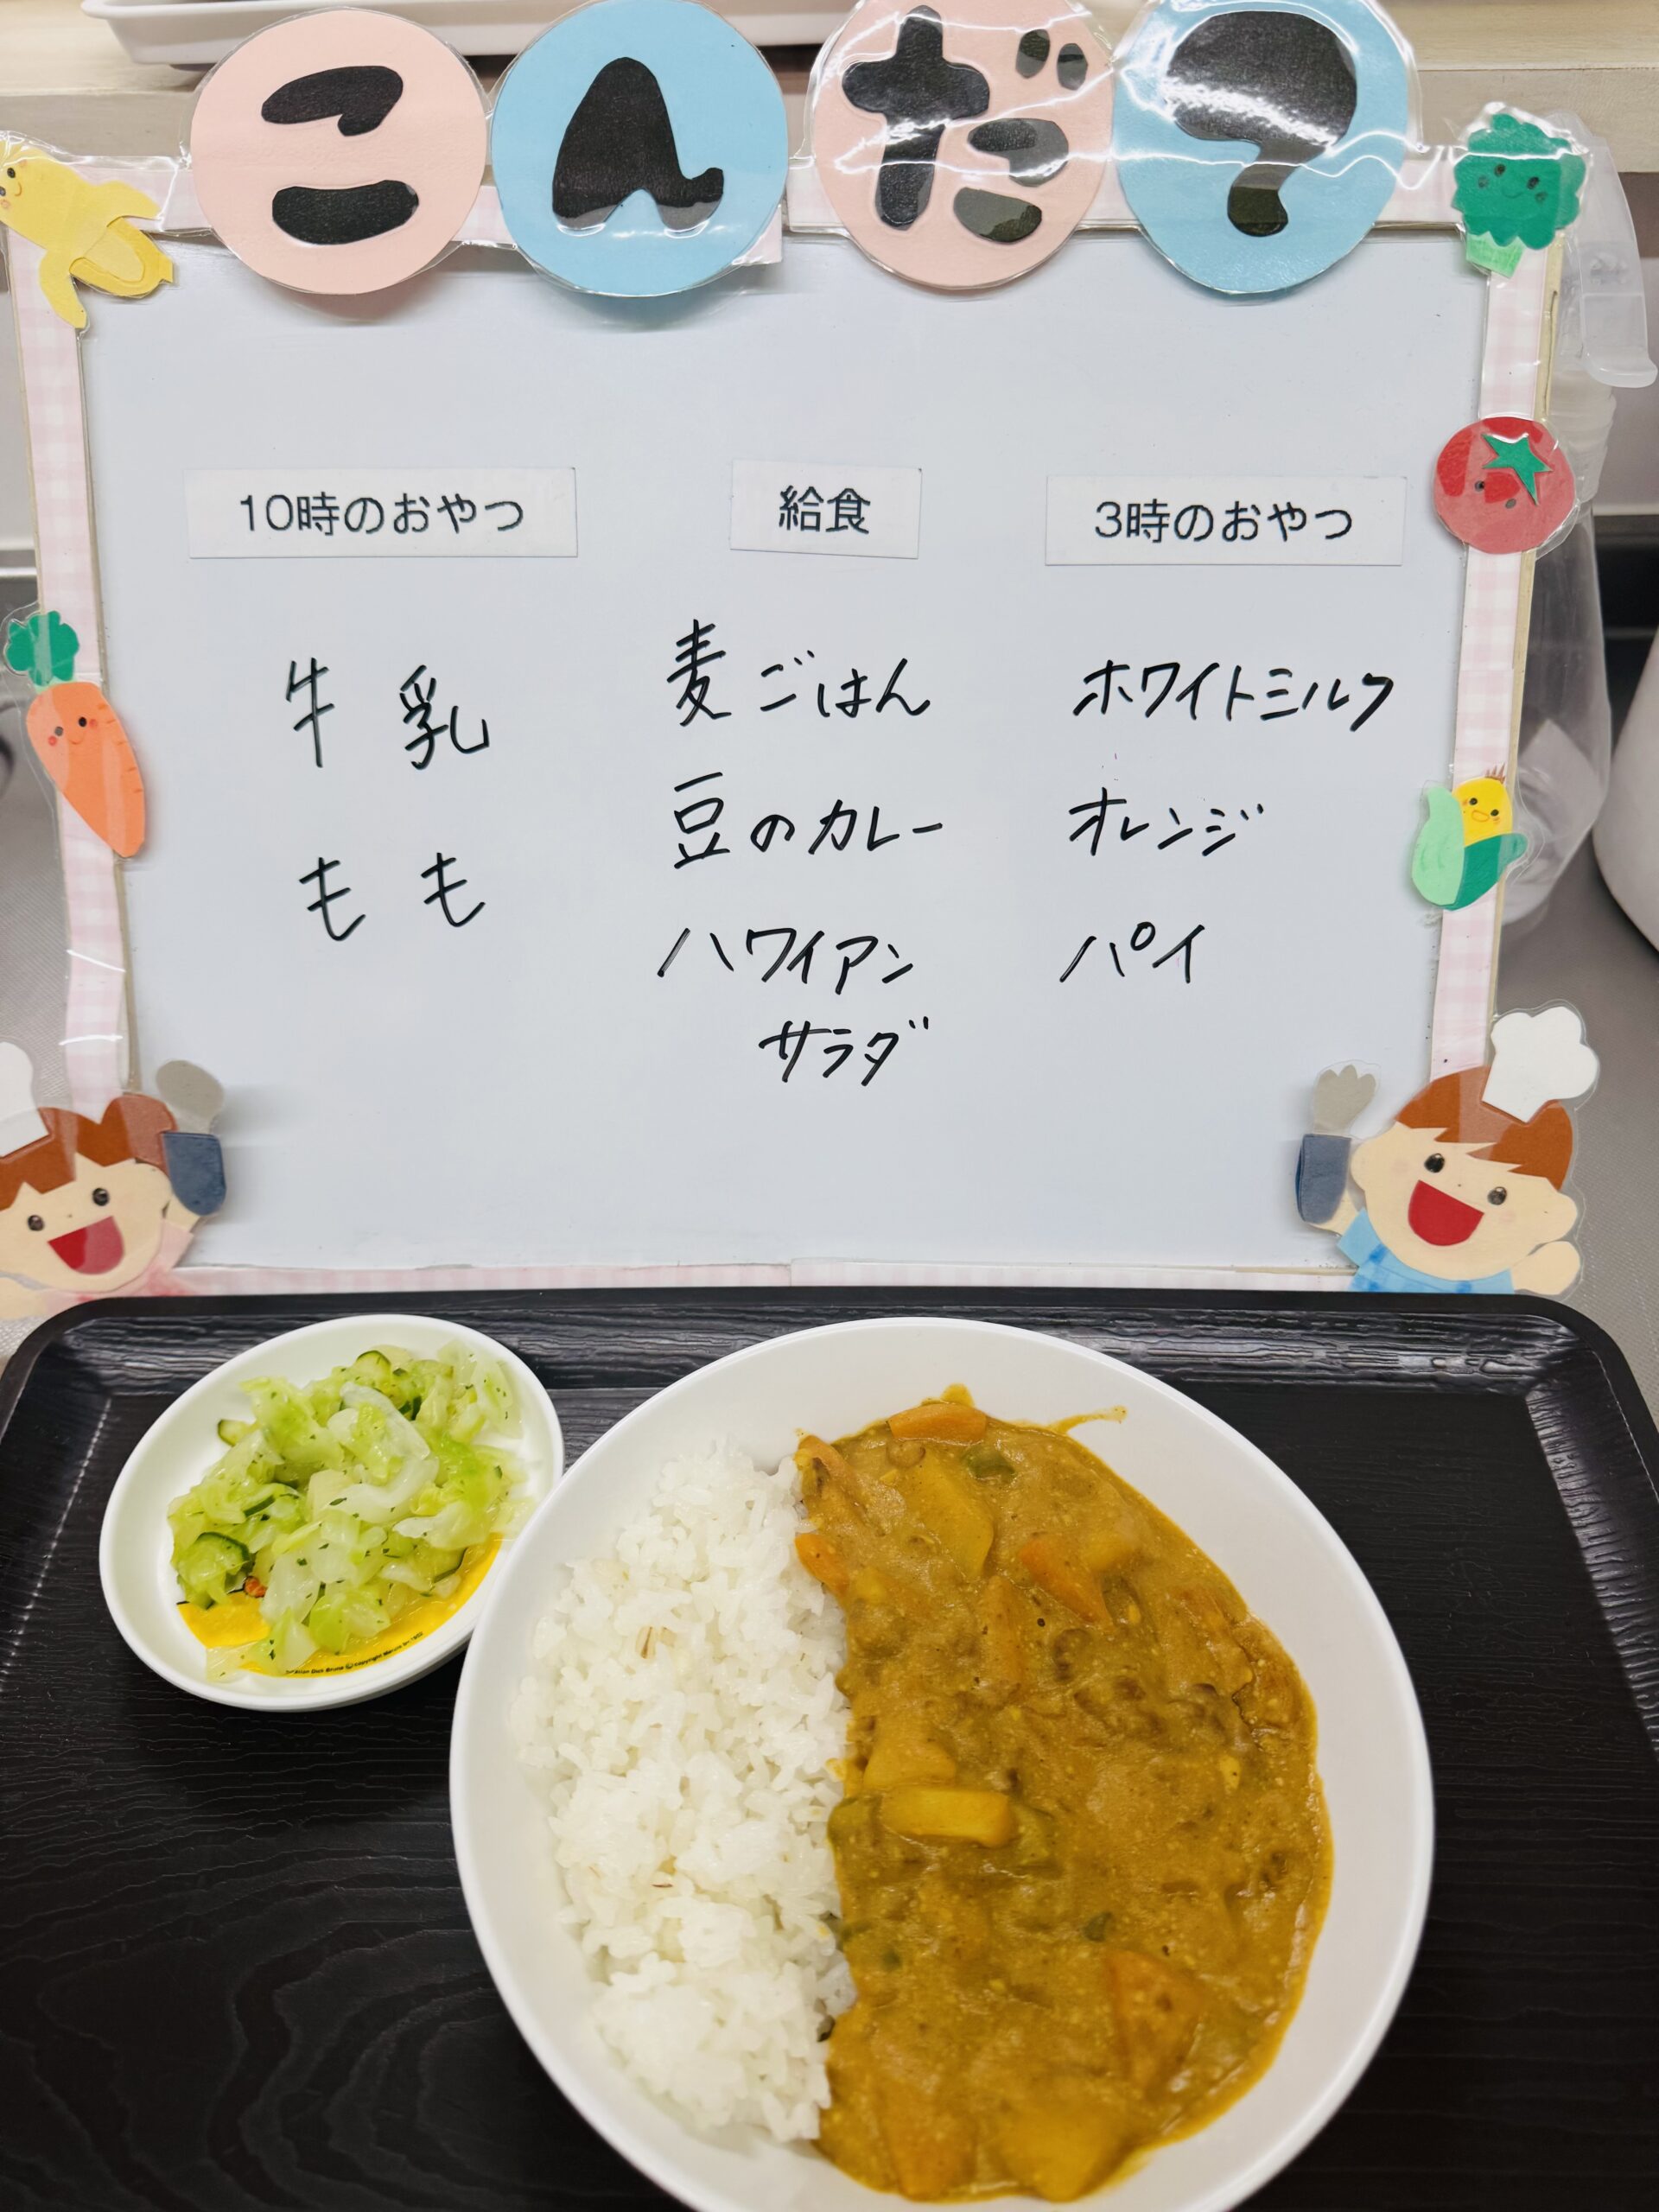 こんだ?
10時のおやつ
牛乳
もも
給食
麦ごはん
豆のカレー
ハワイアン
サラダ
3時のおやつ
ホワイトミルク
オレンジ
パイ